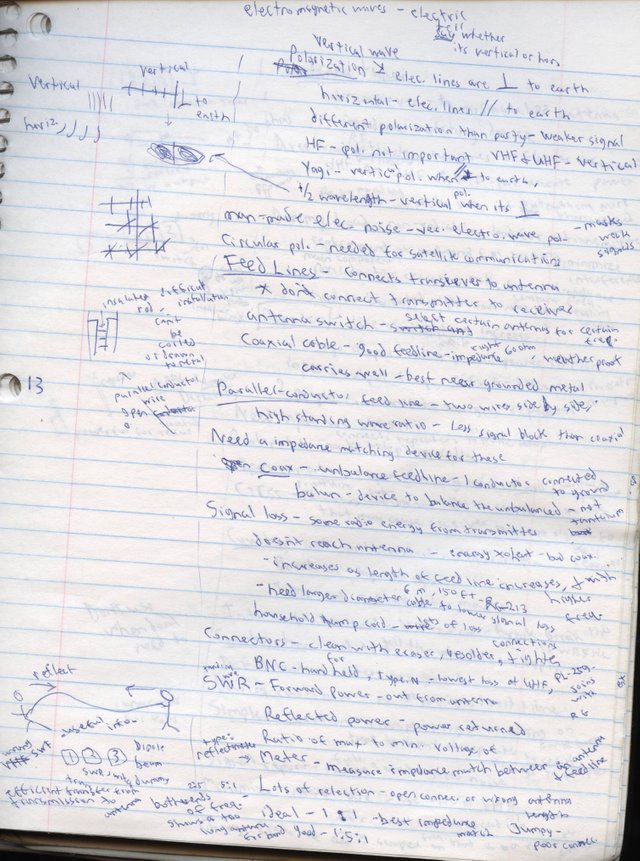 electromagnetic waves - electric
tell whether
its vertical or horz
vertical wave
Polarization elec. lines are ⊥ to earth
vertical
⊥ to earth
vertical
horiz
horizontal - elec. lines // to earth
different polarization than party - weaker signal
HF - pol. not important VHF & UHF - vertical
Yagi - vertic pol. when to earth,
1/2 wavelength - vertical pol. when its ⊥
man-made elec. noise - electro. wave pol. - masks weak signals
Circular pol. - needed for satellite communications
Feed Lines - Connects transceiver to antenna
* don't connect transmitter to receiver
antenna switch - select certain antennas for certain freq.
Coaxial cable - good feedline - impedance right 50 ohm, weatherproof
carries well - best near grounded metal
insulated difficult installation
can't be coiled or drawn to metal
13
parallel conductor
wire
open
Parallel-conductor feed line - two wires side by side,
high standing wave ratio - Less signal block than coaxial
Need a impedance matching device for these
coax - unbalance feedline - 1 conductor connected to ground
balun - device to balance the unbalanced - not
Signal loss - some radio energy from transmitter
doesn't reach antenna - energy heat - bad coax.
- increases as length of feed line increases, & with higher freq.
- need larger diameter cable to lower signal loss
6 m, 150 ft - RG-213
household lamp cord - lots of loss
Connectors - clean with eraser, resolder, tighten connections
BNC - for handheld, type N - lowest loss at UHF, PL-259 - joins with RG
standing wave
SWR - Forward power - out from antenna
Reflected power - power returned
Ratio of max to min. voltage of
type: reflectometer
→ Meter - measure impedance match between antenna & feedline
Lots of reflection - open connec. or wrong antenna length
ideal - 1:1 - best impedance match Jumpy - poor connec.
good - 1.5:1
reflect
useful info.
wrong SWR
1 2 3 dipole
beam
dummy
efficient transfer from transmission to antenna
both ends of freq.
5:1
shows a too long antenna for band